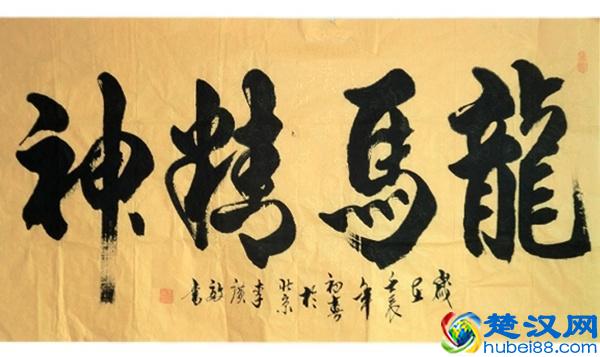 龍馬精神
歲在壬辰年初春於北京李敏書
楚汉网
hubei88.com